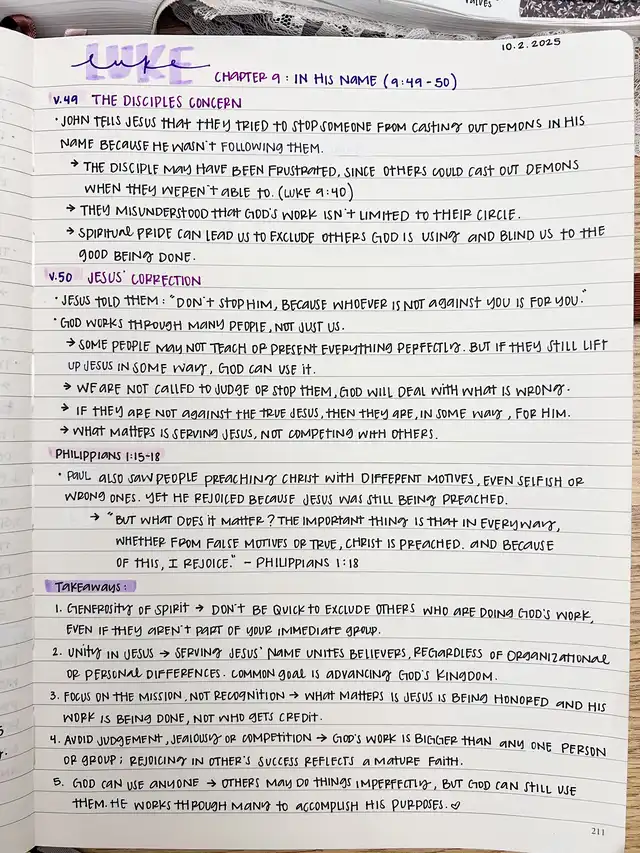 VALVES"
10.2.2025
LUKE
luke
CHAPTER 9: IN HIS NAME (9:49-50)
V.49 THE DISCIPLES CONCERN
• JOHN TELLS JESUS THAT THEY TRIED TO STOP SOMEONE FROM CASTING OUT DEMONS IN HIS
NAME BECAUSE HE WASN'T FOLLOWING THEM.
→ THE DISCIPLE MAY HAVE BEEN FRUSTRATED, SINCE OTHERS COULD CAST OUT DEMONS
WHEN THEY WEREN'T ABLE TO. (LUKE 9:40)
→ THEY MISUNDERSTOOD THAT GOD'S WORK ISN'T LIMITED TO THEIR CIRCLE.
→ SPIRITUAL PRIDE CAN LEAD US TO EXCLUDE OTHERS GOD IS USING AND BLIND US TO THE
GOOD BEING DONE.
V.50 JESUS' CORRECTION
• JESUS TOLD THEM: "DON'T STOP HIM, BECAUSE WHOEVER IS NOT AGAINST YOU IS FOR YOU."
• GOD WORKS THROUGH MANY PEOPLE, NOT JUST US.
→ SOME PEOPLE MAY NOT TEACH OR PRESENT EVERYTHING PERFECTLY. BUT IF THEY STILL LIFT
UP JESUS IN SOME WAY, GOD CAN USE IT.
→ WE ARE NOT CALLED TO JUDGE OR STOP THEM, GOD WILL DEAL WITH WHAT IS WRONG.
→ IF THEY ARE NOT AGAINST THE TRUE JESUS, THEN THEY ARE, IN SOME WAY, FOR HIM.
→ WHAT MATTERS IS SERVING JESUS, NOT COMPETING WITH OTHERS.
PHILIPPIANS 1:15-18
• PAUL ALSO SAW PEOPLE PREACHING CHRIST WITH DIFFERENT MOTIVES, EVEN SELFISH OR
WRONG ONES. YET HE REJOICED BECAUSE JESUS WAS STILL BEING PREACHED.
→ "BUT WHAT DOES IT MATTER? THE IMPORTANT THING IS THAT IN EVERY WAY,
WHETHER FROM FALSE MOTIVES OR TRUE, CHRIST IS PREACHED. AND BECAUSE
OF THIS, I REJOICE." - PHILIPPIANS 1:18
TAKEAWAYS:
1. GENEROSITY OF SPIRIT → DON'T BE QUICK TO EXCLUDE OTHERS WHO ARE DOING GOD'S WORK,
EVEN IF THEY AREN'T PART OF YOUR IMMEDIATE GROUP.
2. UNITY IN JESUS → SERVING JESUS' NAME UNITES BELIEVERS, REGARDLESS OF ORGANIZATIONAL
OR PERSONAL DIFFERENCES. COMMON GOAL IS ADVANCING GOD'S KINGDOM.
3. FOCUS ON THE MISSION, NOT RECOGNITION → WHAT MATTERS IS JESUS IS BEING HONORED AND HIS
WORK IS BEING DONE, NOT WHO GETS CREDIT.
4. AVOID JUDGEMENT, JEALOUSY OR COMPETITION → GOD'S WORK IS BIGGER THAN ANY ONE PERSON
OR GROUP; REJOICING IN OTHER'S SUCCESS REFLECTS A MATURE FAITH.
5. GOD CAN USE ANYONE → OTHERS MAY DO THINGS IMPERFECTLY, BUT GOD CAN STILL USE
THEM. HE WORKS THROUGH MANY TO ACCOMPLISH HIS PURPOSES. ♡
211